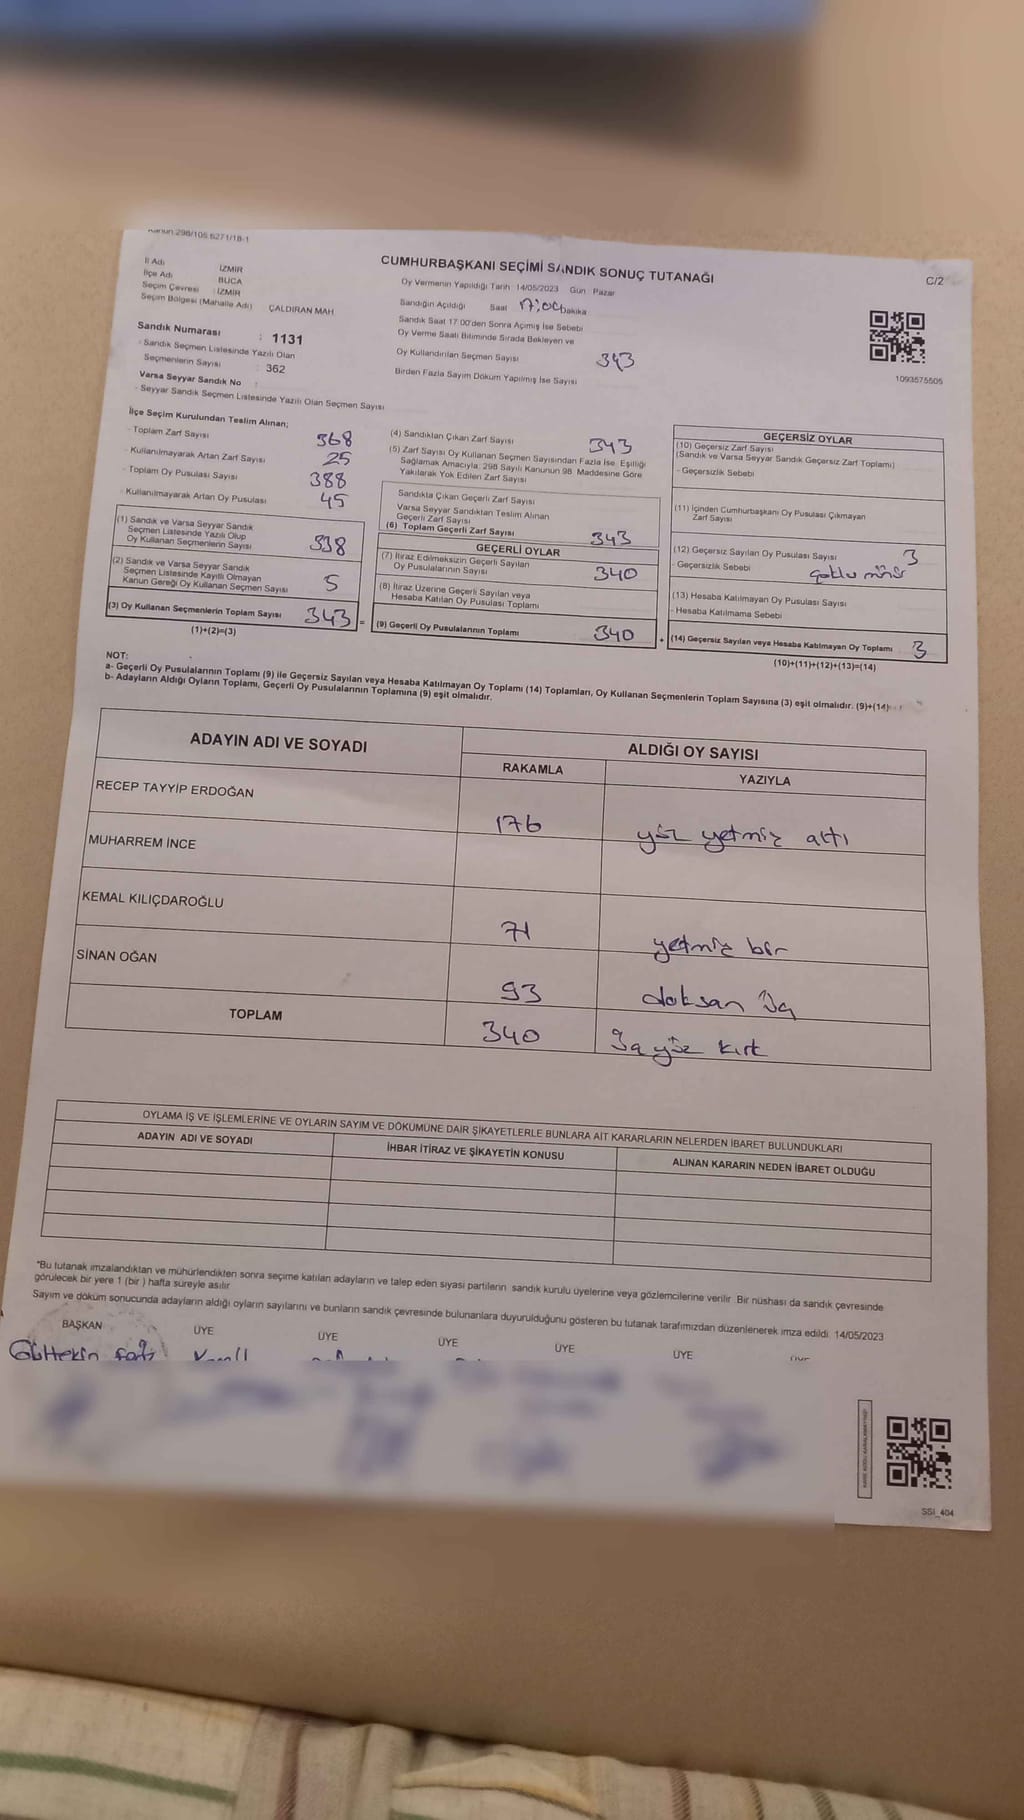 Kanun 298/105 6271/18-1
CUMHURBAŞKANI SEÇİMİ SANDIK SONUÇ TUTANAĞI
C/2
İl Adı İZMİR
İlçe Adı BUCA
Seçim Çevresi : İZMİR
Seçim Bölgesi (Mahalle Adı) ÇALDIRAN MAH
Oy Vermenin Yapıldığı Tarih 14/05/2023 Gün Pazar
Sandığın Açıldığı Saat 17:00 Dakika
Sandık Saat 17:00'den Sonra Açımış İse Sebebi
Oy Verme Saati Bitiminde Sırada Bekleyen ve
Oy Kullandırılan Seçmen Sayısı 343
Birden Fazla Sayım Döküm Yapılmış İse Sayısı
1093575505
Sandık Numarası : 1131
- Sandık Seçmen Listesinde Yazılı Olan
Seçmenlerin Sayısı : 362
Varsa Seyyar Sandık No :
- Seyyar Sandık Seçmen Listesinde Yazılı Olan Seçmen Sayısı
İlçe Seçim Kurulundan Teslim Alınan;
- Toplam Zarf Sayısı 368
- Kullanılmayarak Artan Zarf Sayısı 25
- Toplam Oy Pusulası Sayısı 388
- Kullanılmayarak Artan Oy Pusulası 45
(1) Sandık ve Varsa Seyyar Sandık
Seçmen Listesinde Yazılı Olup
Oy Kullanan Seçmenlerin Sayısı 338
(2) Sandık ve Varsa Seyyar Sandık
Seçmen Listesinde Kayıtlı Olmayan
Kanun Gereği Oy Kullanan Seçmen Sayısı 5
(3) Oy Kullanan Seçmenlerin Toplam Sayısı 343 =
(1)+(2)=(3)
(4) Sandıktan Çıkan Zarf Sayısı 343
(5) Zarf Sayısı Oy Kullanan Seçmen Sayısından Fazla İse, Eşitliği
Sağlamak Amacıyla: 298 Sayılı Kanunun 98. Maddesine Göre
Yakılarak Yok Edilen Zarf Sayısı
Sandıkta Çıkan Geçerli Zarf Sayısı
Varsa Seyyar Sandıktan Teslim Alınan
Geçerli Zarf Sayısı
(6) Toplam Geçerli Zarf Sayısı 343
GEÇERLİ OYLAR
(7) İtiraz Edilmeksizin Geçerli Sayılan
Oy Pusulalarının Sayısı 340
(8) İtiraz Üzerine Geçerli Sayılan veya
Hesaba Katılan Oy Pusulası Toplamı
(9) Geçerli Oy Pusulalarının Toplamı 340 +
GEÇERSİZ OYLAR
(10) Geçersiz Zarf Sayısı
(Sandık ve Varsa Seyyar Sandık Geçersiz Zarf Toplamı)
- Geçersizlik Sebebi
(11) İçinden Cumhurbaşkanı Oy Pusulası Çıkmayan
Zarf Sayısı
(12) Geçersiz Sayılan Oy Pusulası Sayısı 3
- Geçersizlik Sebebi
(13) Hesaba Katılmayan Oy Pusulası Sayısı
- Hesaba Katılmama Sebebi
(14) Geçersiz Sayılan veya Hesaba Katılmayan Oy Toplamı 3
(10)+(11)+(12)+(13)=(14)
NOT:
a- Geçerli Oy Pusulalarının Toplamı (9) ile Geçersiz Sayılan veya Hesaba Katılmayan Oy Toplamı (14) Toplamları, Oy Kullanan Seçmenlerin Toplam Sayısına (3) eşit olmalıdır. (9)+(14)
b- Adayların Aldığı Oyların Toplamı, Geçerli Oy Pusulalarının Toplamına (9) eşit olmalıdır.
ADAYIN ADI VE SOYADI
ALDIĞI OY SAYISI
RAKAMLA YAZIYLA
RECEP TAYYİP ERDOĞAN 176 yüz yetmiş altı
MUHARREM İNCE
KEMAL KILIÇDAROĞLU 71 yetmiş bir
SİNAN OĞAN 93 doksan üç
TOPLAM 340 üç yüz kırk
OYLAMA İŞ VE İŞLEMLERİNE VE OYLARIN SAYIM VE DÖKÜMÜNE DAİR ŞİKAYETLERLE BUNLARA AİT KARARLARIN NELERDEN İBARET BULUNDUKLARI
ADAYIN ADI VE SOYADI
İHBAR İTİRAZ VE ŞİKAYETİN KONUSU
ALINAN KARARIN NEDEN İBARET OLDUĞU
*Bu tutanak imzalandıktan ve mühürlendikten sonra seçime katılan adayların ve talep eden siyasi partilerin sandık kurulu üyelerine veya gözlemcilerine verilir. Bir nüshası da sandık çevresinde
görülecek bir yere 1 (bir ) hafta süreyle asılır
Sayım ve döküm sonucunda adayların aldığı oyların sayılarını ve bunların sandık çevresinde bulunanlara duyurulduğunu gösteren bu tutanak tarafımızdan düzenlenerek imza edildi. 14/05/2023
BAŞKAN ÜYE ÜYE ÜYE ÜYE ÜYE
SSI_404